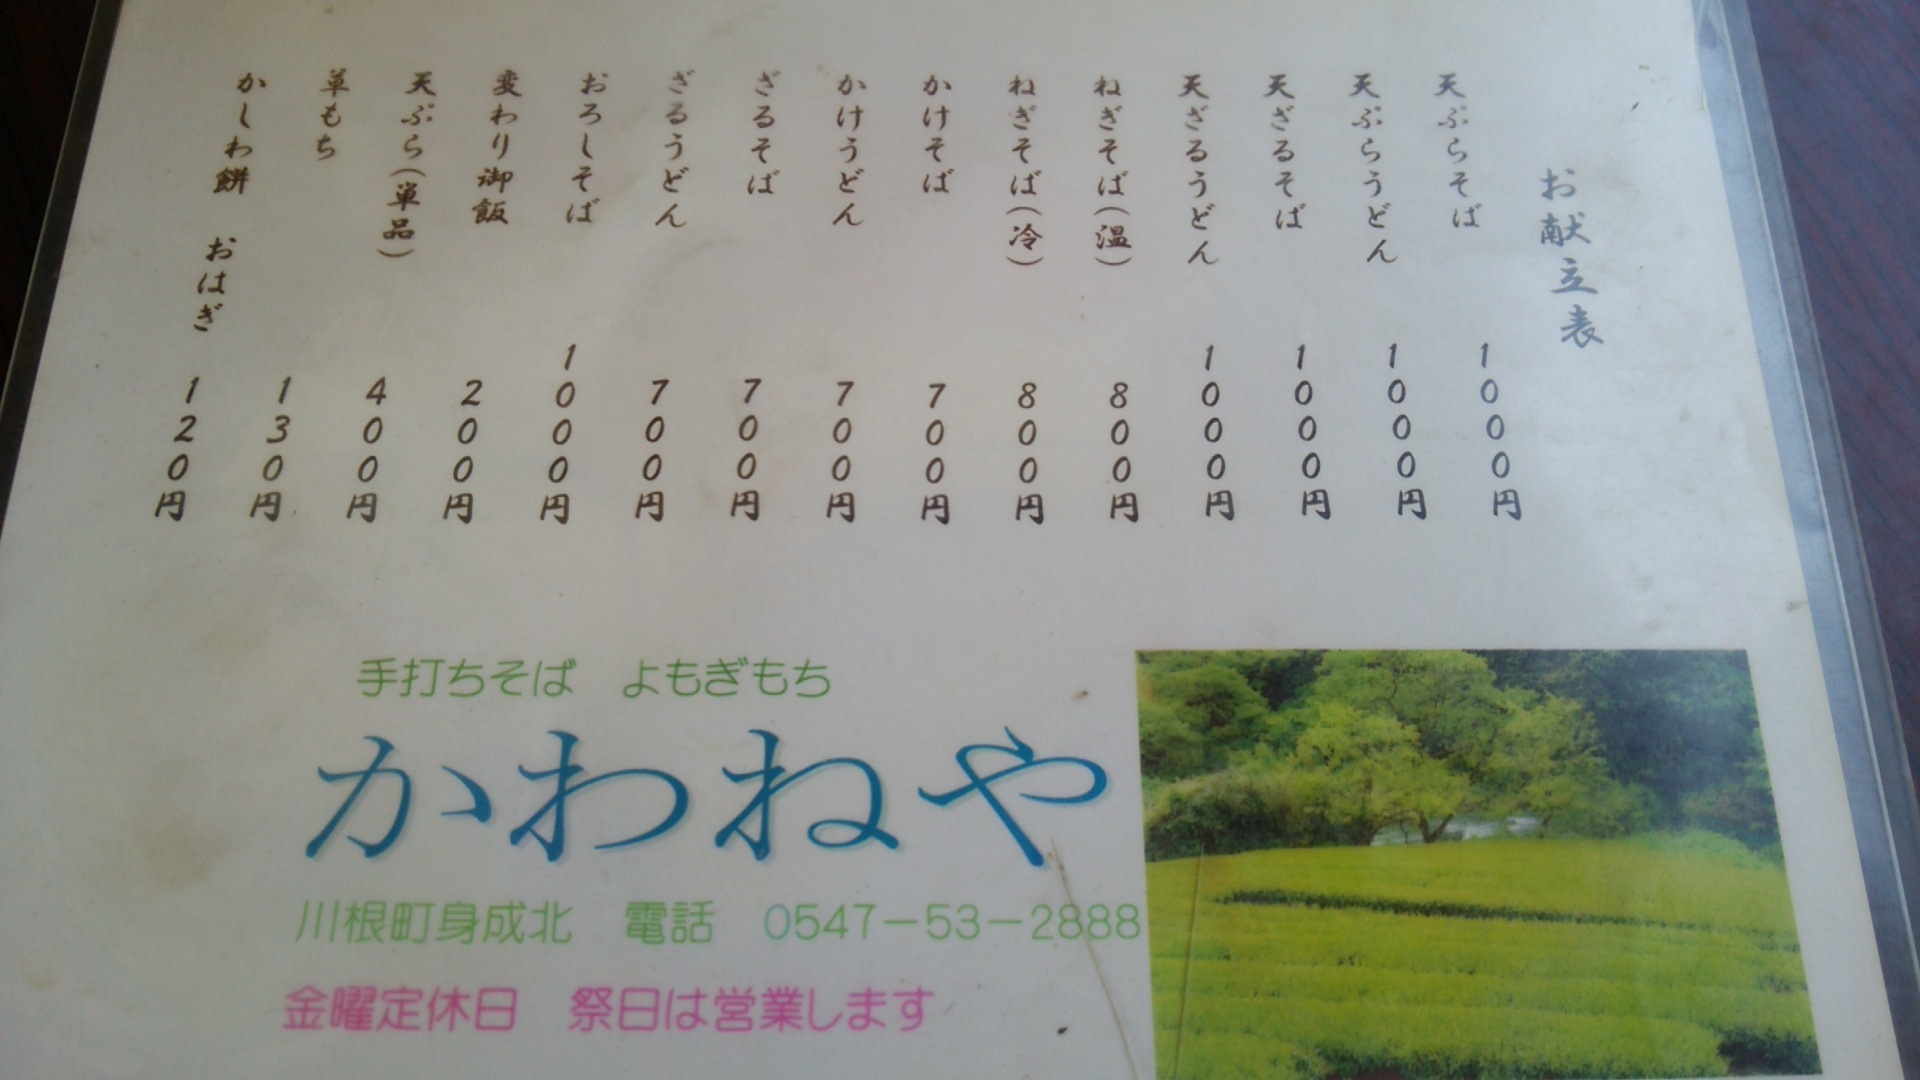 お献立表
天ぷらそば 1000円
天ぷらうどん 1000円
天ざるそば 1000円
天ざるうどん 1000円
ねぎそば(温) 800円
ねぎそば(冷) 800円
かけそば 700円
かけうどん 700円
ざるそば 700円
ざるうどん 700円
おろしそば 1000円
変わり御飯 200円
天ぷら(単品) 400円
草もち 130円
かしわ餅 おはぎ 120円
手打ちそば よもぎもち
かわねや
川根町身成北 電話 0547-53-2888
金曜定休日 祭日は営業します